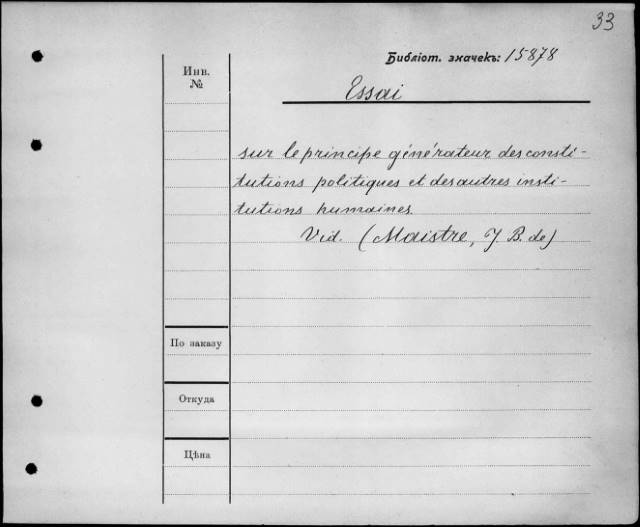 33
Библіот. значекъ: 15878
Инв.
№
Essai
sur le principe générateur des consti-
tutions politiques et des autres insti-
tutions humaines.
Vid. (Maistre, J. B. de)
По заказу
Откуда
Цѣна